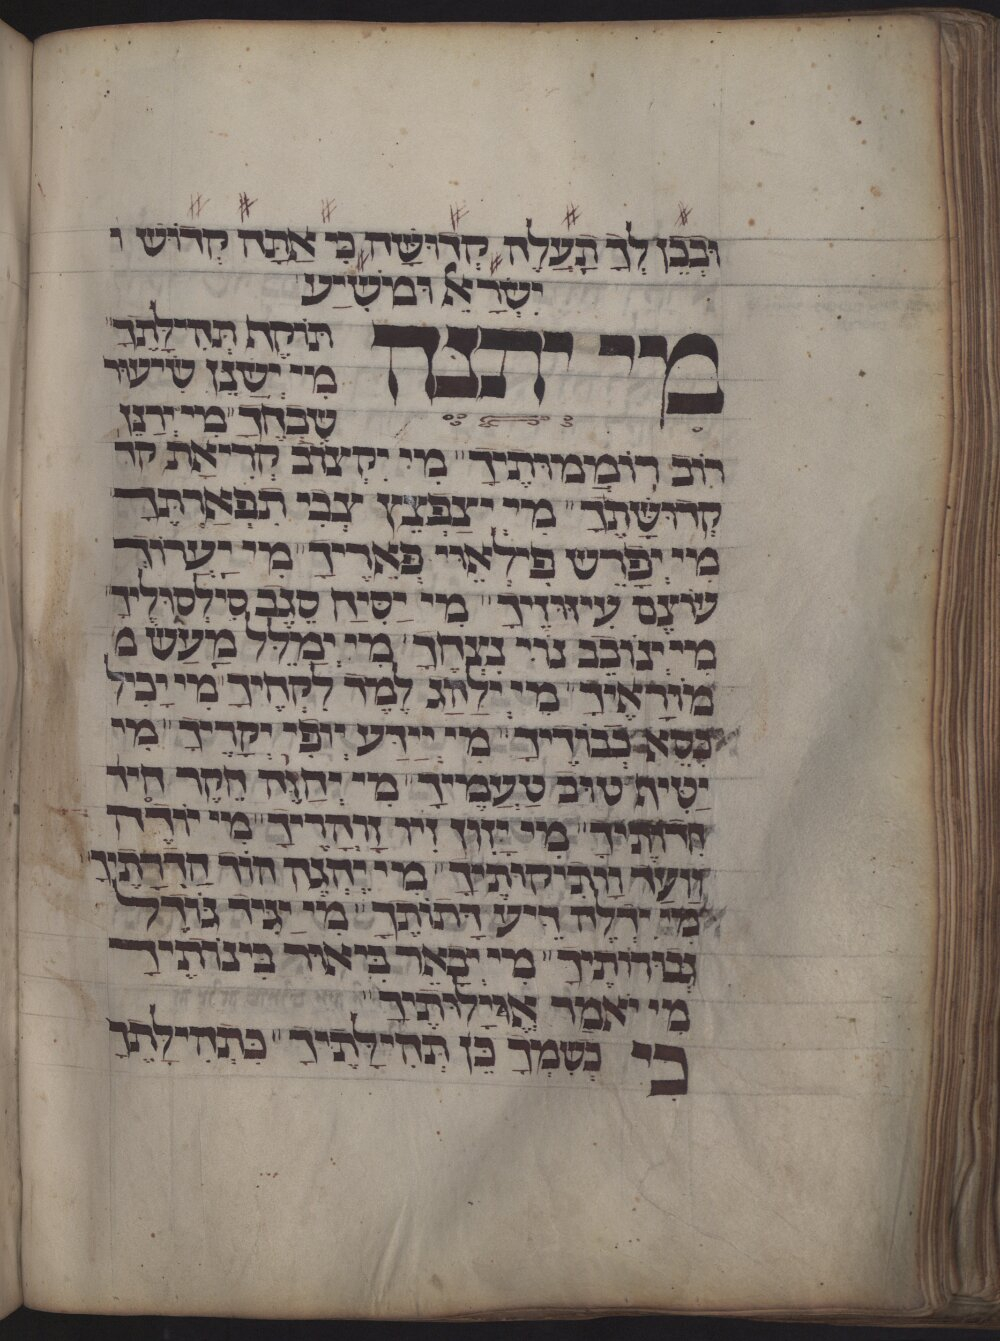 וּבְכֵן לְךָ תַעֲלֶה קְדוּשָּׁה כִּי אַתָּה קְדוֹשׁ י
יִשְׂרָאֵ וּמוֹשִׁיעַ
מִי יְתַנֶּה תּוֹקֶף תְּהִילָּתֶךָ
מִי יְשַׁנֵּן שִׁיעוּר
שִׁבְחֶךָ מִי יְרַנֵּן
רוֹב רוֹמְמוּתֶיךָ מִי יִקְצוֹב קְרִיאַת קד
קְדוּשָּׁתֶךָ מִי יְצַפְצֵץ צְבִי תִּפְאַרְתֶּךָ
מִי יְפָרֵשׁ פִּילְאֵי פְּאֵרֶיךָ מִי יַעֲרוֹךְ
עוֹצֶם עִיזּוּזֶיךָ מִי יָשִׂיחַ סֶגֶב סִילְסוּלֶיךָ
מִי יְנוֹבֵב נוֹי נִצְחֶךָ מִי יְמַלֵּל מַעַשׂ מ
מוֹרָאֶיךָ מִי יְלַהֵג לֶמֶד לִקְחֶיךָ מִי יָכִיל
כֶּסֶא כְּבוֹדֶיךָ מִי יֵידַע יוֹפִי יְקָרֶיךָ מִי
יַטִּיף טוּב טַעֲמֶיךָ מִי יְחַוֶּה חֵקֶר חִיד
חִידוֹתֶיךָ מִי יָזוֹן זִיו זְהָרֶיךָ מִי יוֹרֶה
וַעַד וָתִיקוּתֶיךָ מִי יֶהְגֶּה הוֹד הַדְרָתֶיךָ
מִי יִדְלֶה דֵּיעַ דָּתוֹתֶךָ מִי יַגִּיד גּוֹדֶל
גְּבוּרוֹתֶיךָ מִי יְבָאֵר בִּיאוּר בִּינוֹתֶיךָ
מִי יֹאמַר אֱיָלוּתֶיךָ
כִּי כְּשִׁמְךָ כֵּן תְּהִילָּתֶיךָ כִּתְהִילָתֶךָ